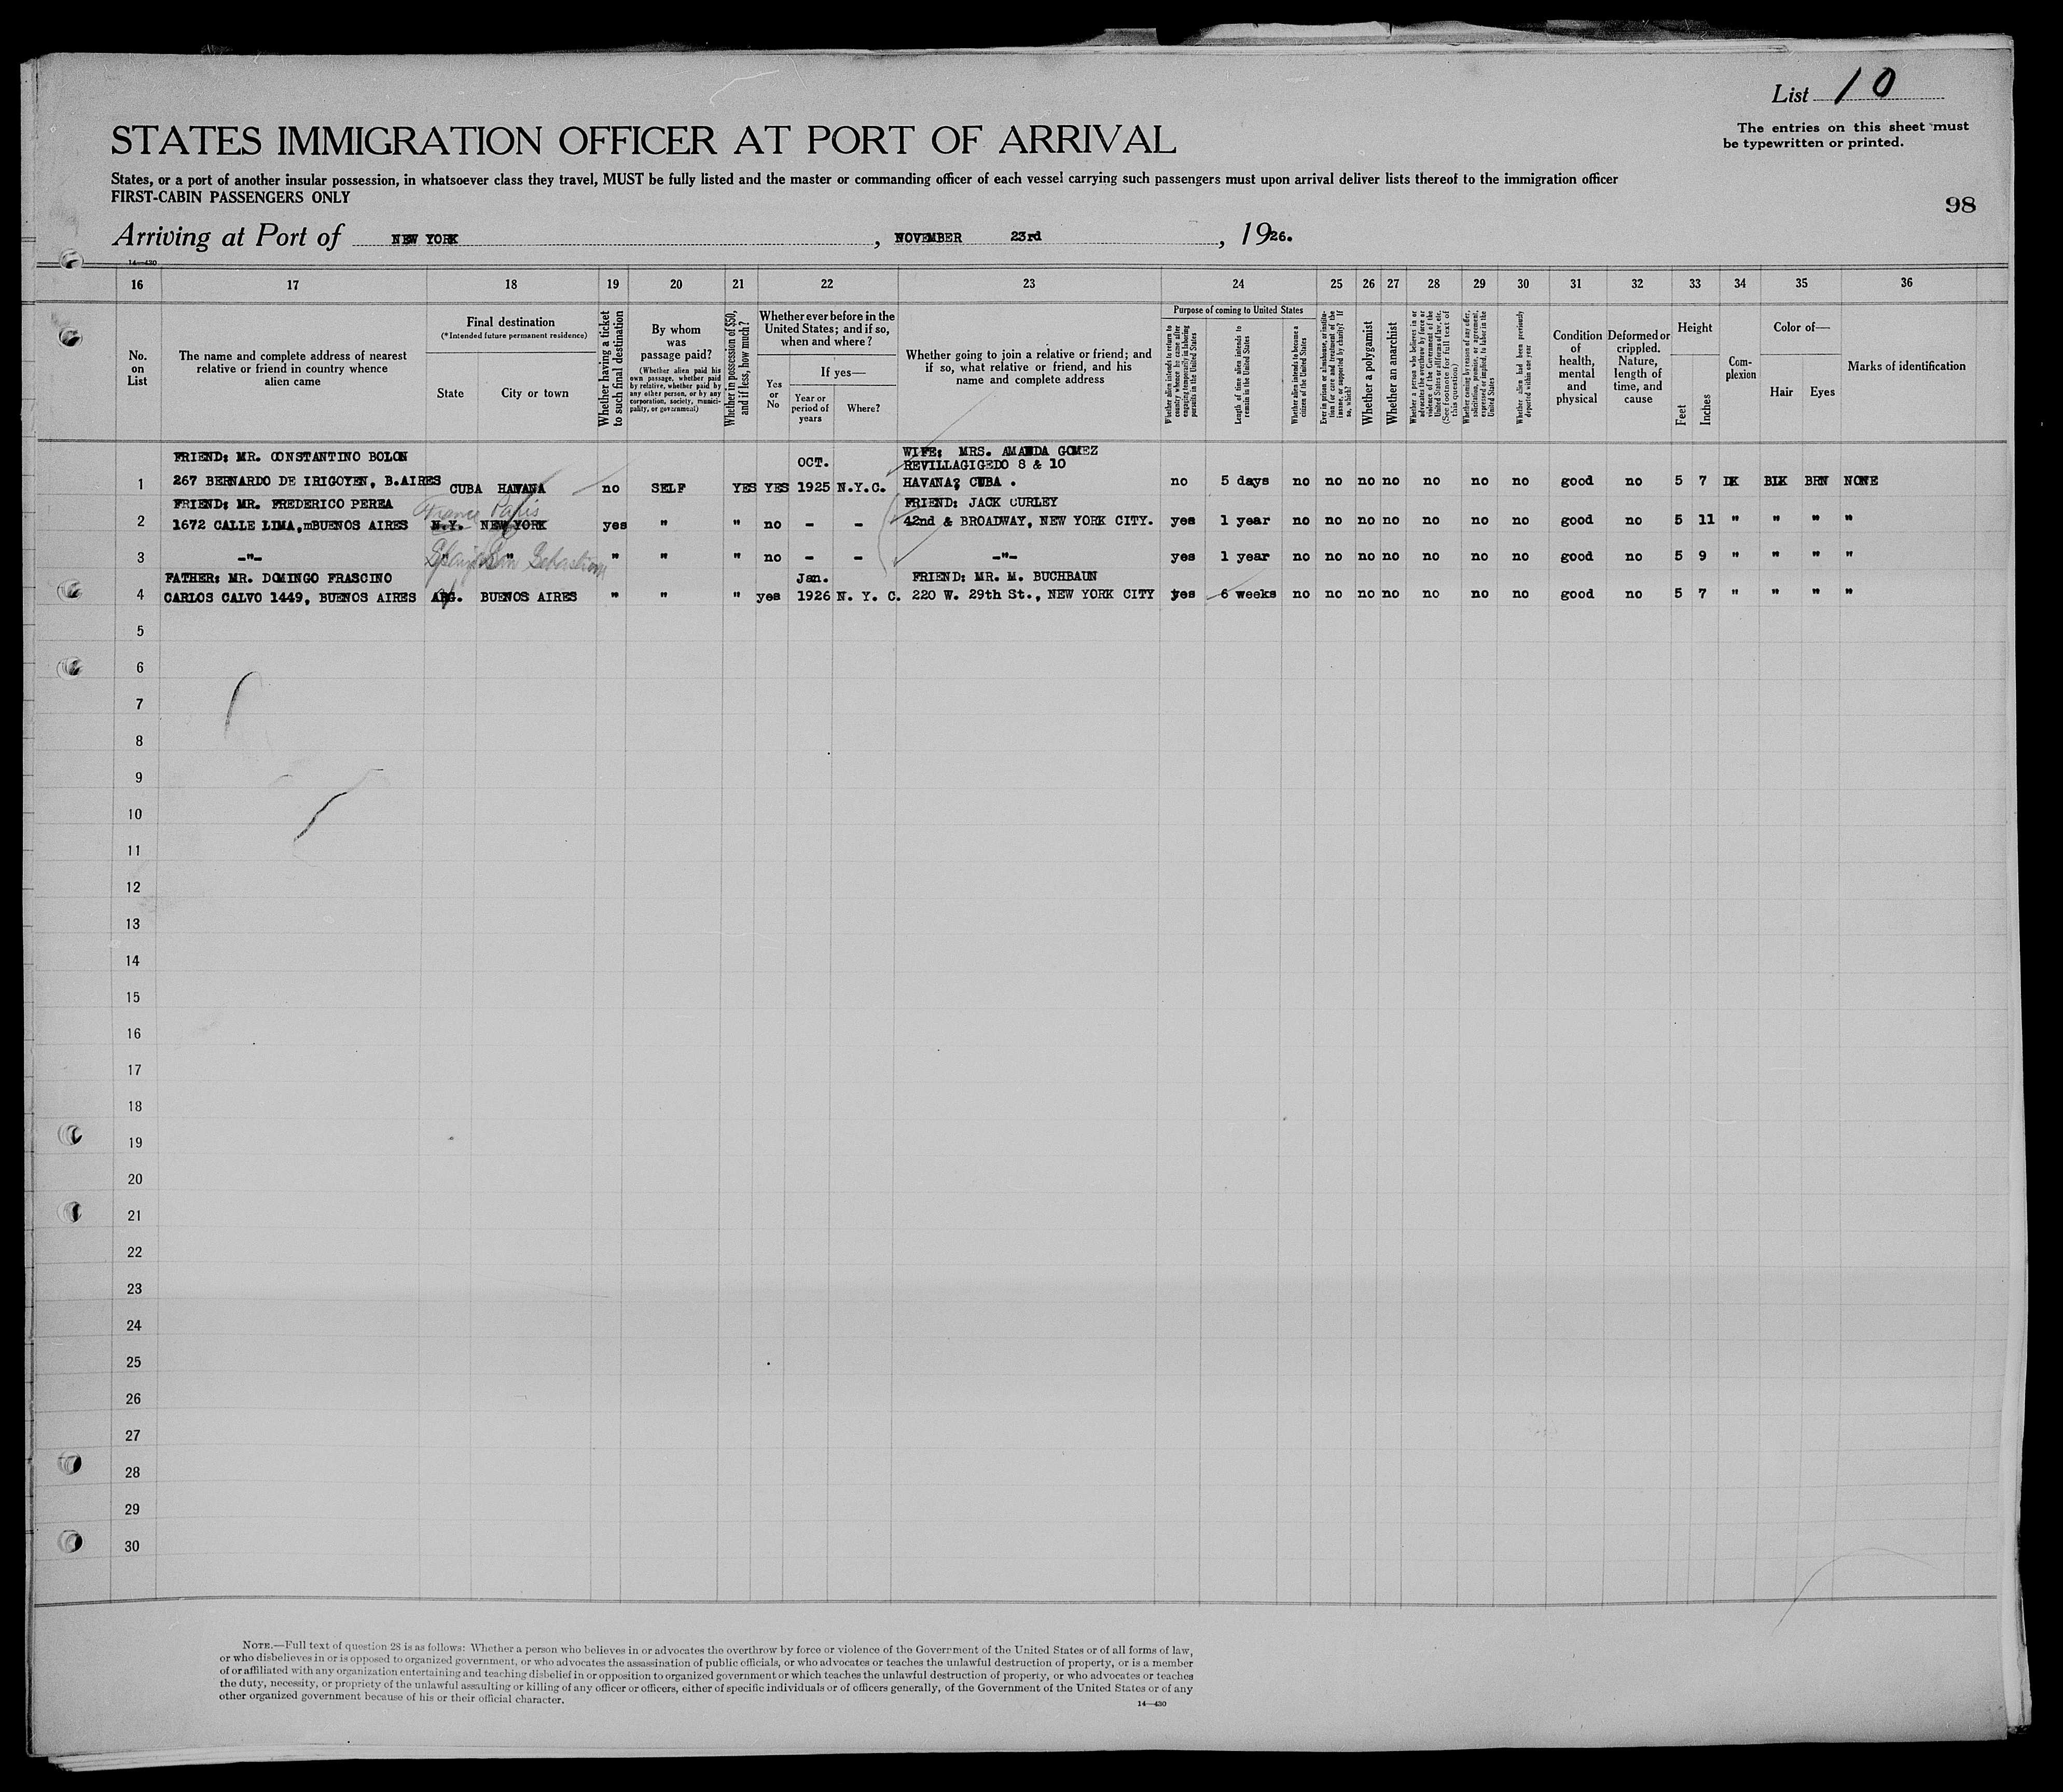 List 10
The entries on this sheet must
be typewritten or printed.
STATES IMMIGRATION OFFICER AT PORT OF ARRIVAL
States, or a port of another insular possession, in whatsoever class they travel, MUST be fully listed and the master or commanding officer of each vessel carrying such passengers must upon arrival deliver lists thereof to the immigration officer
FIRST-CABIN PASSENGERS ONLY
98
Arriving at Port of NEW YORK, NOVEMBER 23rd, 1926.
14—430
16 17 18 19 20 21 22 23 24 25 26 27 28 29 30 31 32 33 34 35 36
No. on List
The name and complete address of nearest relative or friend in country whence alien came
Final destination
(*Intended future permanent residence)
State
City or town
Whether having a ticket to such final destination
By whom was passage paid?
(Whether alien paid his own passage, whether paid by relative, whether paid by any other person, or by any corporation, society, municipality, or government)
Whether in possession of $50, and if less, how much?
Whether ever before in the United States; and if so, when and where?
Yes or No
If yes—
Year or period of years
Where?
Whether going to join a relative or friend; and if so, what relative or friend, and his name and complete address
Purpose of coming to United States
Whether alien intends to return to country whence he came after engaging temporarily in laboring pursuits in the United States
Length of time alien intends to remain in the United States
Whether alien intends to become a citizen of the United States
Ever in prison or almshouse, or institution for care and treatment of the insane, or supported by charity? If so, which?
Whether a polygamist
Whether an anarchist
Whether a person who believes in or advocates the overthrow by force or violence of the Government of the United States or all forms of law, etc. (See footnote for full text of this question)
Whether coming by reason of any offer, solicitation, promise, or agreement, expressed or implied, to labor in the United States
Whether alien had been previously deported within one year
Condition of health, mental and physical
Deformed or crippled. Nature, length of time, and cause
Height
Feet
Inches
Complexion
Color of—
Hair
Eyes
Marks of identification
FRIEND: MR. CONSTANTINO BOLON OCT. WIFE: MRS. AMANDA GOMEZ
REVILLAGIGEDO 8 & 10
1 267 BERNARDO DE IRIGOYEN, B.AIRES CUBA HAVANA no SELF YES YES 1925 N.Y.C. HAVANA? CUBA . no 5 days no no no no no no no good no 5 7 DK BLK BRN NONE
FRIEND: MR. FREDERICO PEREA France Paris FRIEND: JACK CURLEY
2 1672 CALLE LIMA,mBUENOS AIRES N.Y. NEW YORK yes " " no - - 42nd & BROADWAY, NEW YORK CITY. yes 1 year no no no no no no no good no 5 11 " " " "
3 -"- " " Spain San Sebastian " " " no - - -"- yes 1 year no no no no no no no good no 5 9 " " " "
FATHER: MR. DOMINGO FRASCINO Jan. FRIEND: MR. M. BUCHBAUN
4 CARLOS CALVO 1449, BUENOS AIRES ARG. BUENOS AIRES " " " yes 1926 N. Y. C. 220 W. 29th St., NEW YORK CITY yes 6 weeks no no no no no no no good no 5 7 " " " "
5
6
7
8
9
10
11
12
13
14
15
16
17
18
19
20
21
22
23
24
25
26
27
28
29
30
NOTE.—Full text of question 28 is as follows: Whether a person who believes in or advocates the overthrow by force or violence of the Government of the United States or of all forms of law,
or who disbelieves in or is opposed to organized government, or who advocates the assassination of public officials, or who advocates or teaches the unlawful destruction of property, or is a member
of or affiliated with any organization entertaining and teaching disbelief in or opposition to organized government or which teaches the unlawful destruction of property, or who advocates or teaches
the duty, necessity, or propriety of the unlawful assaulting or killing of any officer or officers, either of specific individuals or of officers generally, of the Government of the United States or of any
other organized government because of his or their official character.
14—430